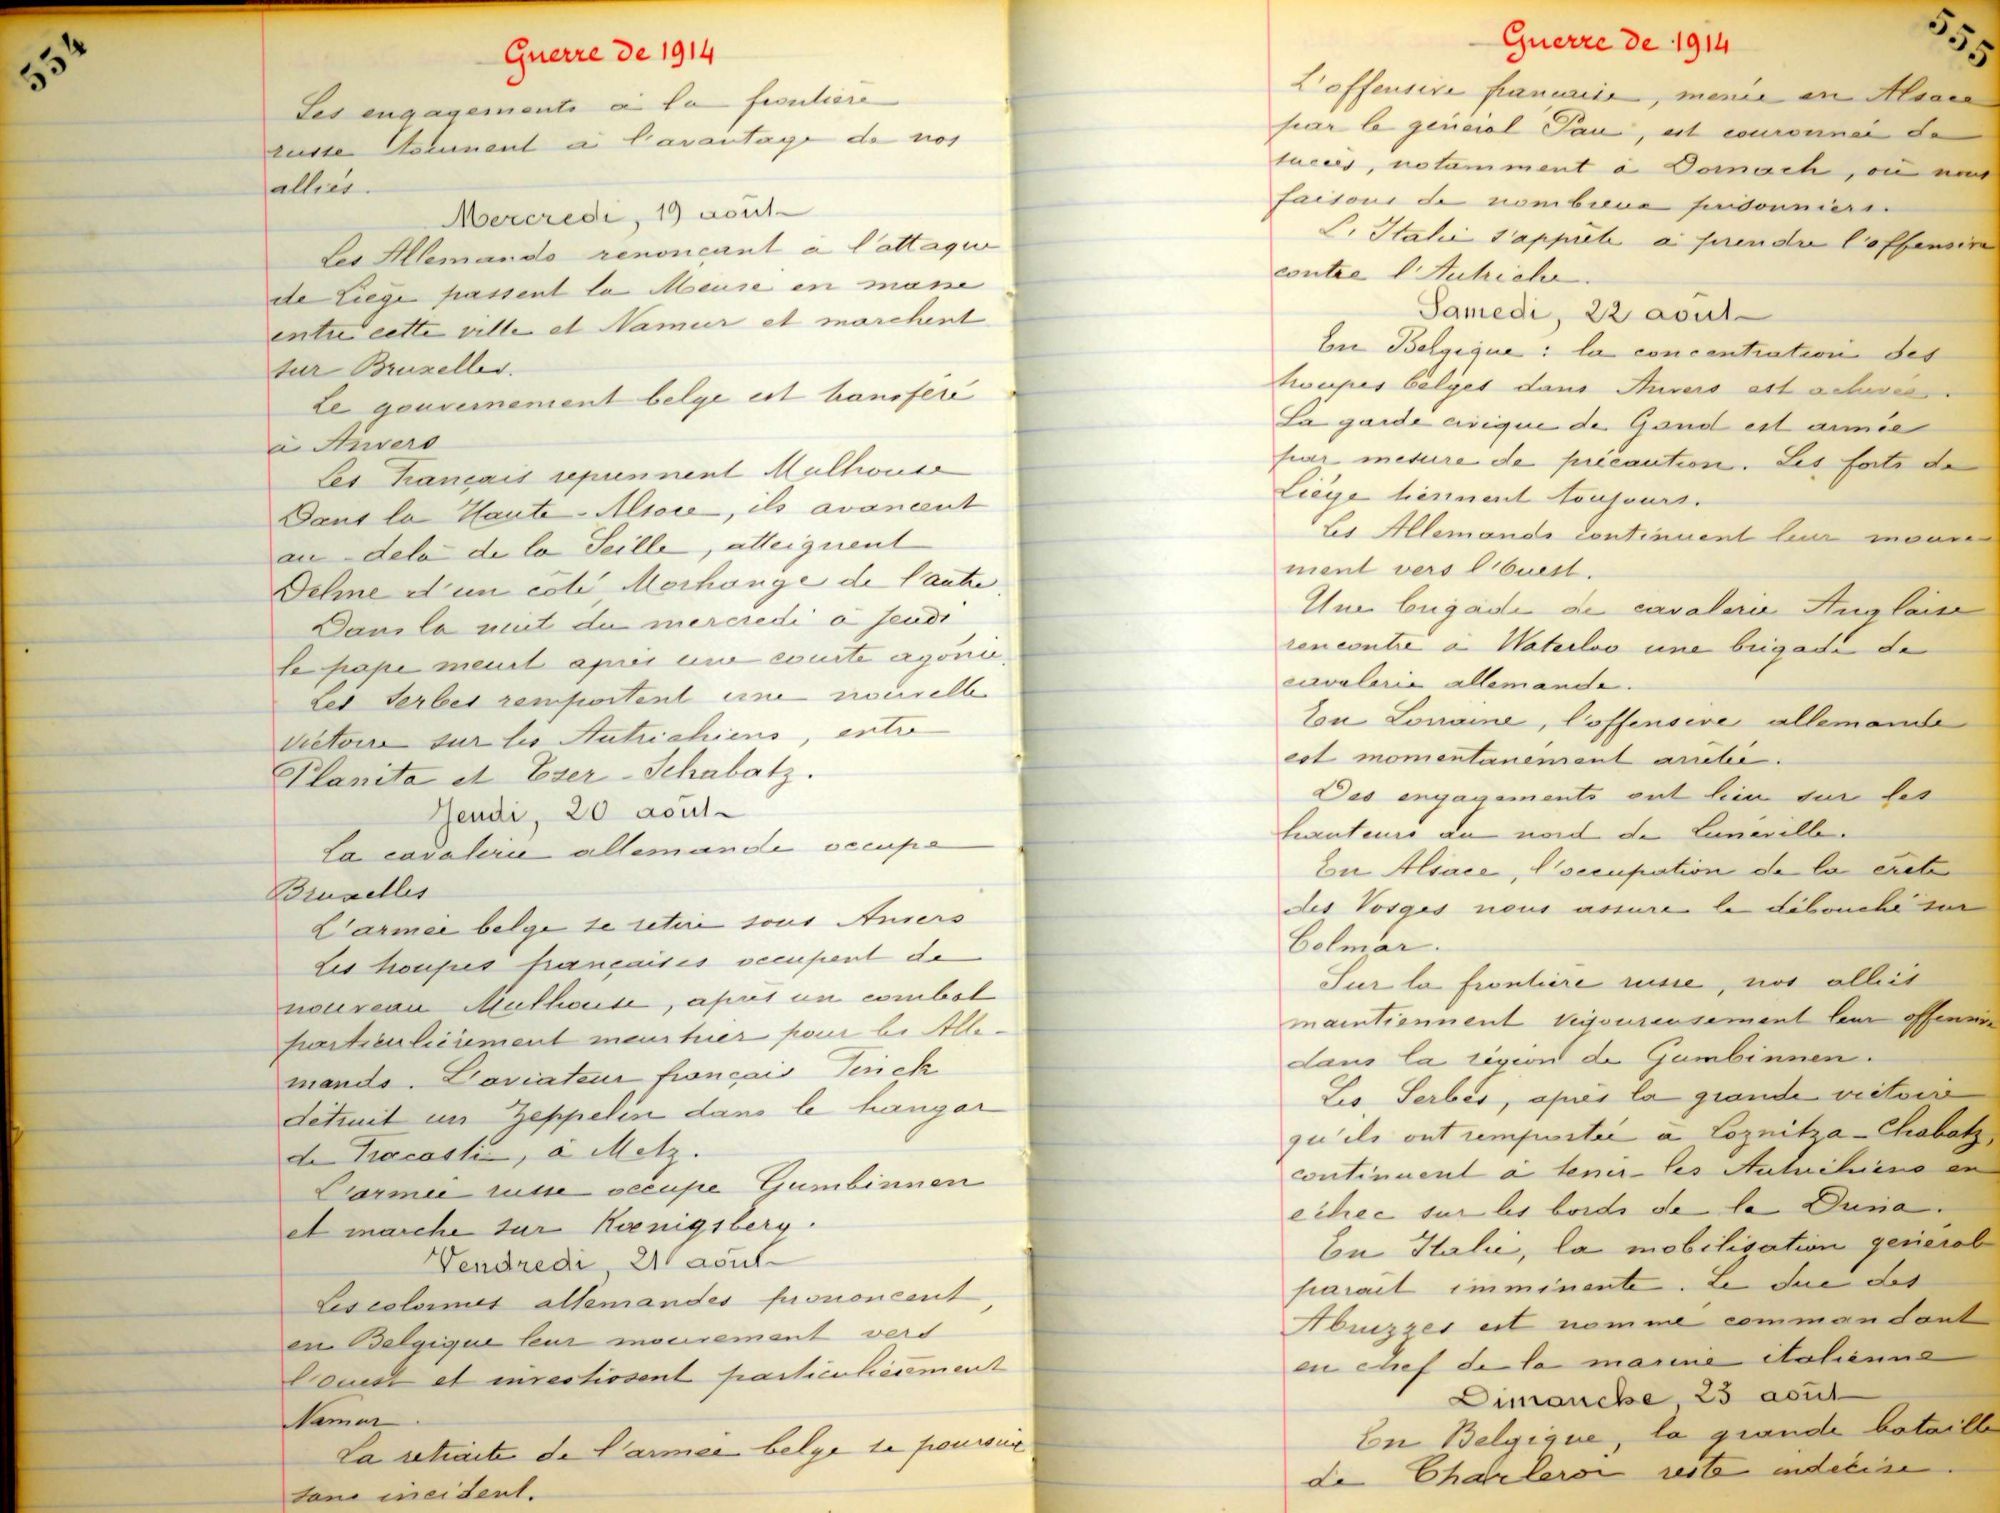 554
Guerre de 1914
Les engagements à la frontière
russe tournent à l'avantage de nos
alliés.
Mercredi, 19 août
Les Allemands renonçant à l'attaque
de Liège passent la Meuse en masse
entre cette ville et Namur et marchent
sur Bruxelles.
Le gouvernement belge est transféré
à Anvers
Les Français reprennent Mulhouse
Dans la Haute-Alsace, ils avancent
au-delà de la Seille, atteignent
Delme d'un côté, Morhange de l'autre.
Dans la nuit du mercredi à jeudi
le pape meurt après une courte agonie.
Les Serbes remportent une nouvelle
victoire sur les Autrichiens, entre
Planita et Eser-Schabatz.
Jeudi, 20 août
La cavalerie allemande occupe
Bruxelles
L'armée belge se retire sous Anvers
Les troupes françaises occupent de
nouveau Mulhouse, après un combat
particulièrement meurtrier pour les Alle-
mands. L'aviateur français Finck
détruit un Zeppelin dans le hangar
de Frascati, à Metz.
L'armée russe occupe Gumbinnen
et marche sur Kœnigsberg.
Vendredi, 21 août
Les colonnes allemandes prononcent,
en Belgique leur mouvement vers
l'ouest et investissent particulièrement
Namur.
La retraite de l'armée belge se poursuit
sans incident.
555
Guerre de 1914
L'offensive française, menée en Alsace
par le général Pau, est couronnée de
succès, notamment à Dornach, où nous
faisons de nombreux prisonniers.
L'Italie s'apprête à prendre l'offensive
contre l'Autriche.
Samedi, 22 août
En Belgique : la concentration des
troupes belges dans Anvers est achevée.
La garde civique de Gand est armée
par mesure de précaution. Les forts de
Liège tiennent toujours.
Les Allemands continuent leur mouve-
ment vers l'Ouest.
Une brigade de cavalerie Anglaise
rencontre à Waterloo une brigade de
cavalerie allemande.
En Lorraine, l'offensive allemande
est momentanément arrêtée.
Des engagements ont lieu sur les
hauteurs au nord de Lunéville.
En Alsace, l'occupation de la crête
des Vosges nous assure le débouché sur
Colmar.
Sur la frontière russe, nos alliés
maintiennent vigoureusement leur offensive
dans la région de Gumbinnen.
Les Serbes, après la grande victoire
qu'ils ont remportée à Loznitza-Chabatz,
continuent à tenir les Autrichiens en
échec sur les bords de la Drina.
En Italie, la mobilisation général
paraît imminente. Le duc des
Abruzzes est nommé commandant
en chef de la marine italienne
Dimanche, 23 août
En Belgique, la grande bataille
de Charleroi reste indécise.